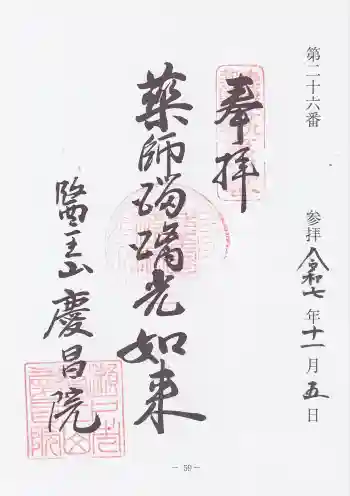 第二十六番
参拝 令和七年十一月五日
奉拝
薬師瑠璃光如来
醫王山 慶昌院
－ 50 －